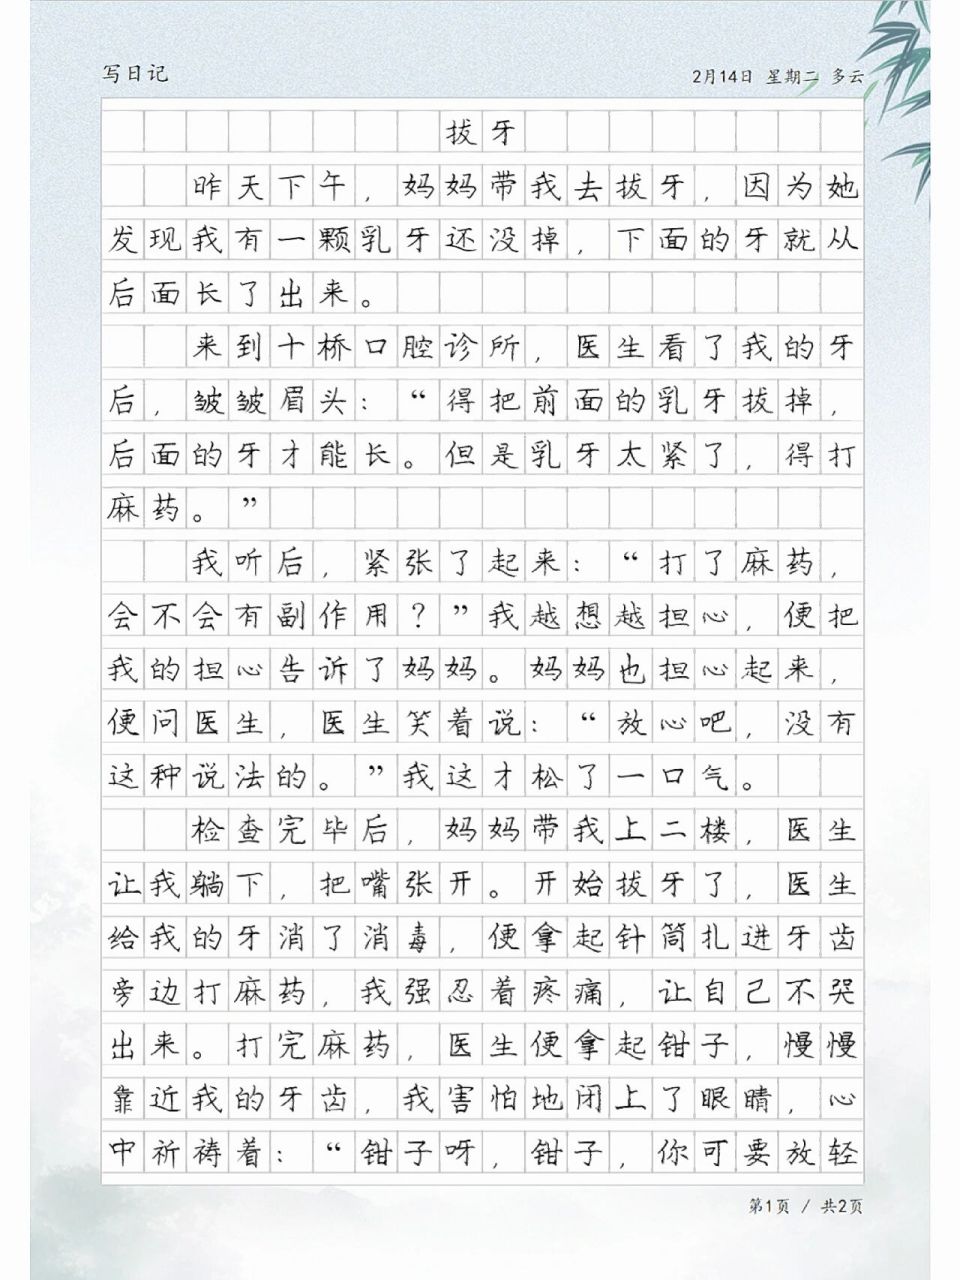 写日记
2月14日 星期二 多云
拔牙
昨天下午，妈妈带我去拔牙，因为她
发现我有一颗乳牙还没掉，下面的牙就从
后面长了出来。
来到十桥口腔诊所，医生看了我的牙
后，皱皱眉头：“得把前面的乳牙拔掉，
后面的牙才能长。但是乳牙太紧了，得打
麻药。”
我听后，紧张了起来：“打了麻药，
会不会有副作用？”我越想越担心，便把
我的担心告诉了妈妈。妈妈也担心起来，
便问医生，医生笑着说：“放心吧，没有
这种说法的。”我这才松了一口气。
检查完毕后，妈妈带我上二楼，医生
让我躺下，把嘴张开。开始拔牙了，医生
给我的牙消了消毒，便拿起针筒扎进牙齿
旁边打麻药，我强忍着疼痛，让自己不哭
出来。打完麻药，医生便拿起钳子，慢慢
靠近我的牙齿，我害怕地闭上了眼睛，心
中祈祷着：“钳子呀，钳子，你可要放轻
第1页 / 共2页